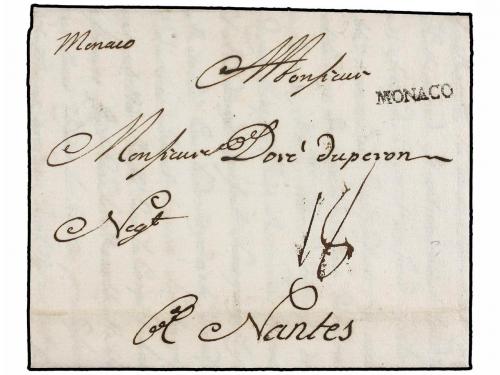 Monaco
A Monsieur
MONACO
Monsieur Doré duperon
Negt
18
A Nantes